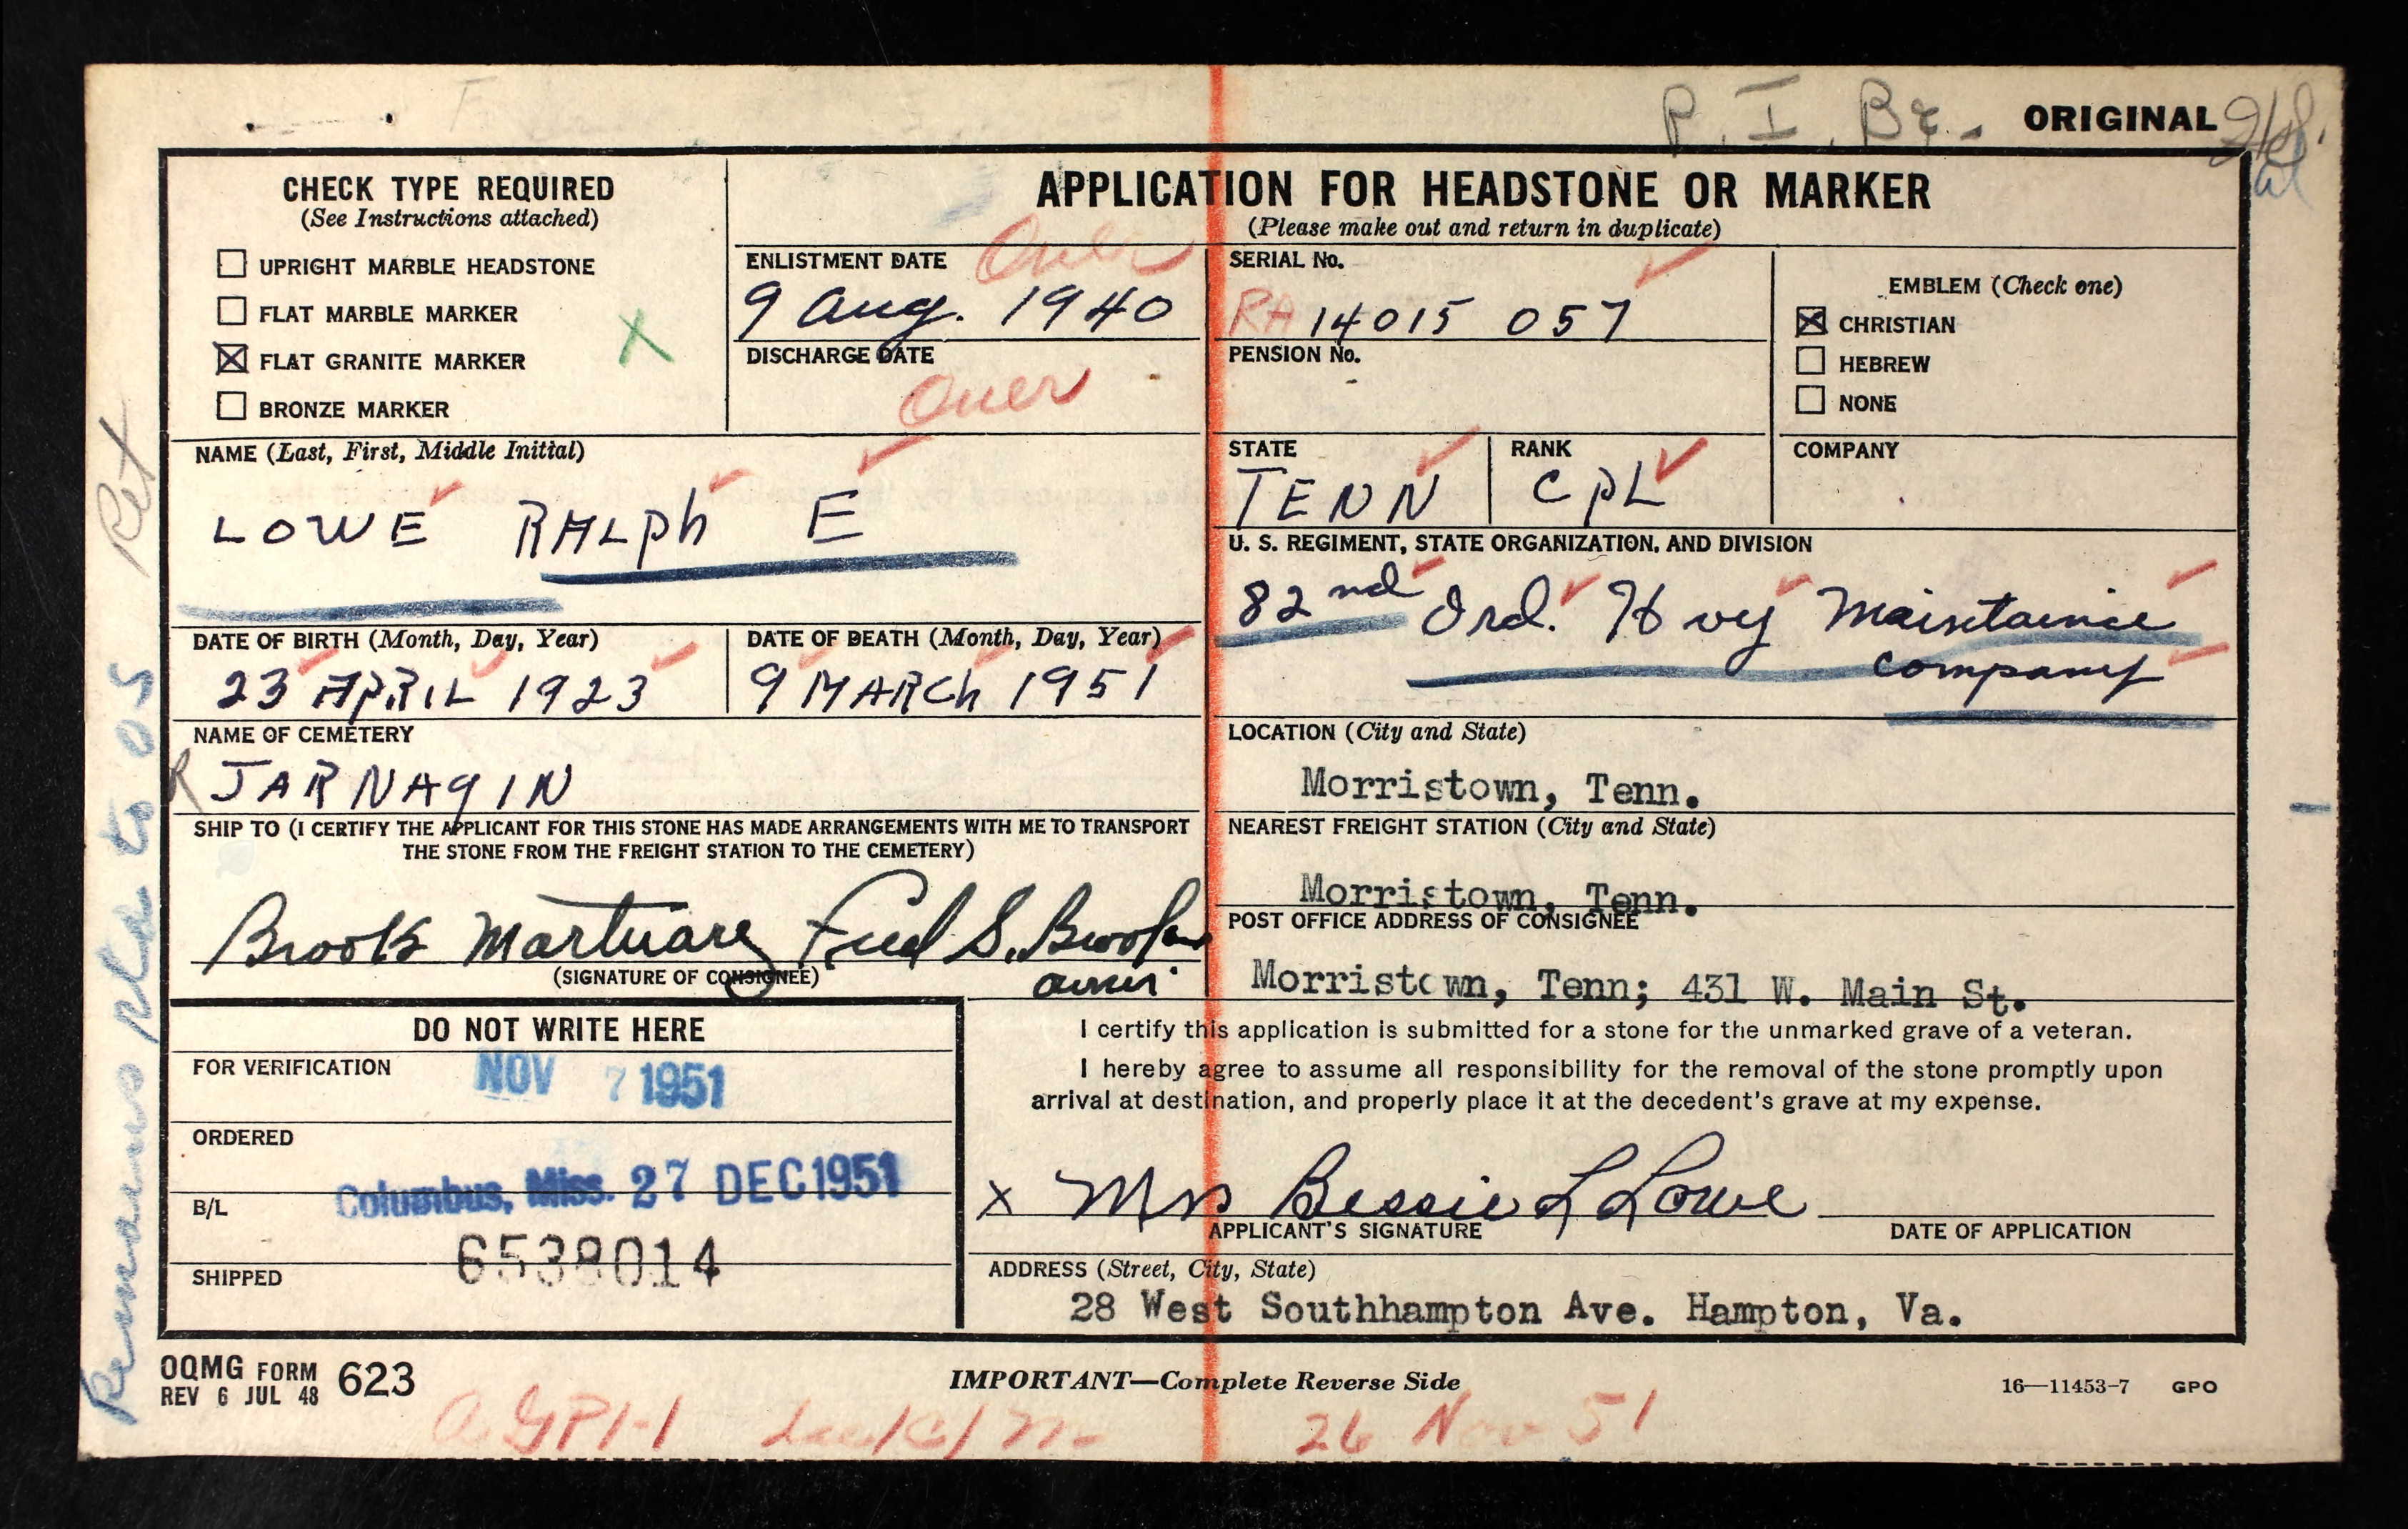 P. I. Br. ORIGINAL
CHECK TYPE REQUIRED
(See Instructions attached)
UPRIGHT MARBLE HEADSTONE
FLAT MARBLE MARKER
☒ FLAT GRANITE MARKER X
BRONZE MARKER
APPLICATION FOR HEADSTONE OR MARKER
(Please make out and return in duplicate)
ENLISTMENT DATE Over
9 Aug. 1940
DISCHARGE DATE
Over
SERIAL No.
RA 14015 057
PENSION No.
EMBLEM (Check one)
☒ CHRISTIAN
HEBREW
NONE
NAME (Last, First, Middle Initial)
LOWE RALPh E
STATE
TENN
RANK
CPL
COMPANY
U. S. REGIMENT, STATE ORGANIZATION, AND DIVISION
82nd Ord. Hvy Maintainie
company
DATE OF BIRTH (Month, Day, Year)
23 APRIL 1923
DATE OF DEATH (Month, Day, Year)
9 MARCh 1951
NAME OF CEMETERY
R JARNAgIN
LOCATION (City and State)
Morristown, Tenn.
SHIP TO (I CERTIFY THE APPLICANT FOR THIS STONE HAS MADE ARRANGEMENTS WITH ME TO TRANSPORT
THE STONE FROM THE FREIGHT STATION TO THE CEMETERY)
Brooks Martuary Fred S. Brooks
(SIGNATURE OF CONSIGNEE)
NEAREST FREIGHT STATION (City and State)
Morristown, Tenn.
POST OFFICE ADDRESS OF CONSIGNEE
Morristown, Tenn; 431 W. Main St.
DO NOT WRITE HERE
FOR VERIFICATION NOV 7 1951
ORDERED
Columbus, Miss. 27 DEC 1951
B/L
6538014
SHIPPED
I certify this application is submitted for a stone for the unmarked grave of a veteran.
I hereby agree to assume all responsibility for the removal of the stone promptly upon
arrival at destination, and properly place it at the decedent's grave at my expense.
x Mrs Bessie L Lowe
APPLICANT'S SIGNATURE DATE OF APPLICATION
ADDRESS (Street, City, State)
28 West Southhampton Ave. Hampton, Va.
OQMG FORM 623
REV 6 JUL 48
IMPORTANT—Complete Reverse Side
16—11453-7 GPO
26 Nov 51
Ret